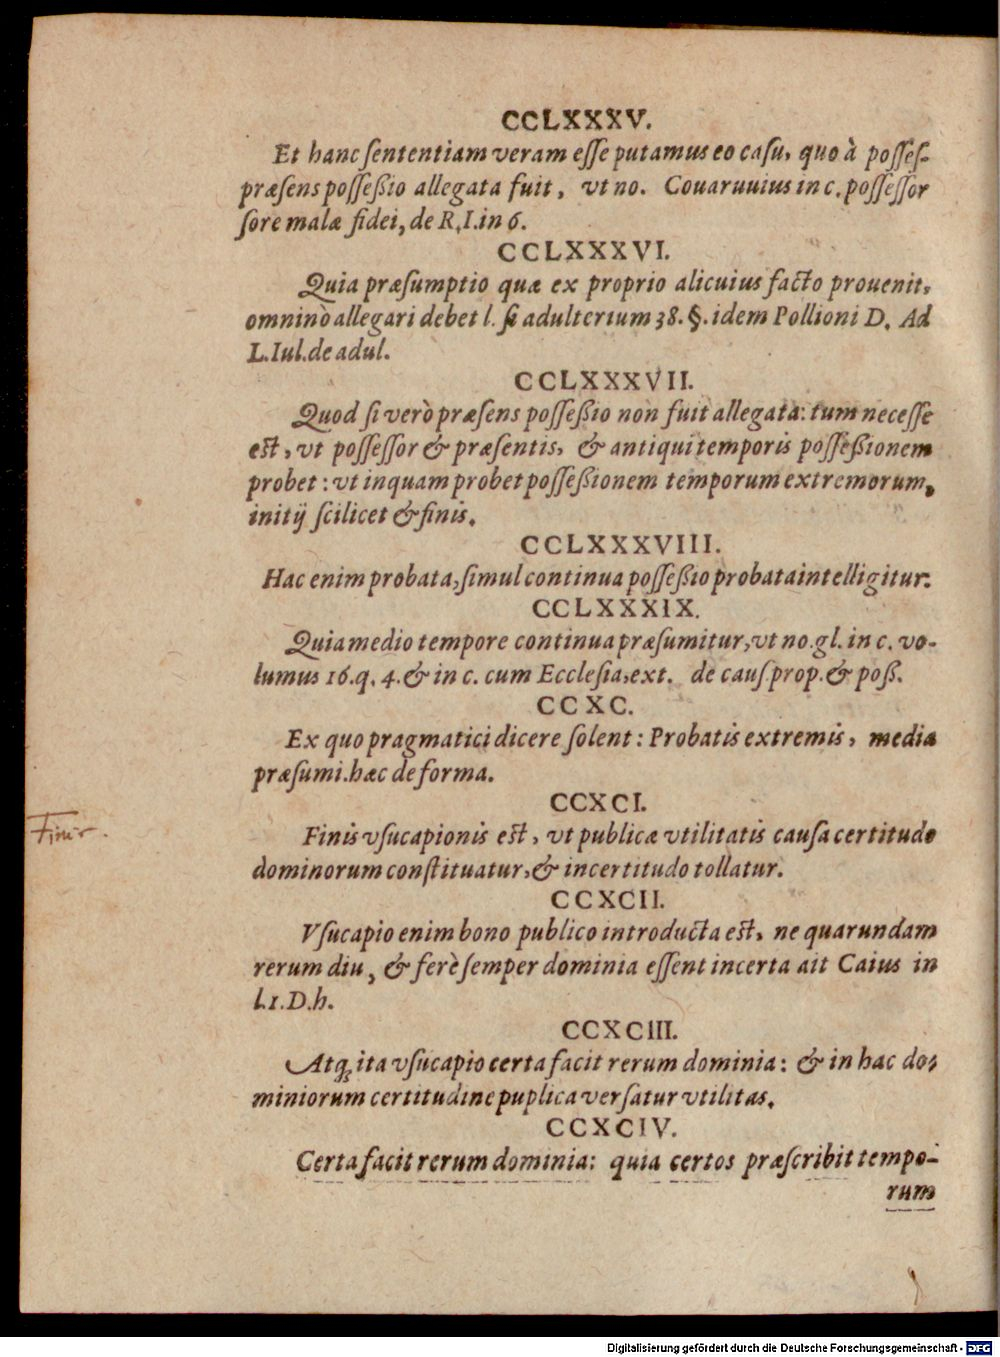 CCLXXXV.
Et hanc ſententiam veram eſſe putamus eo caſu, quo à poſſeſ-
præſens poſſeßio allegata fuit, vt no. Couaruuius in c. poſſeſſor
ſore malæ fidei, de R.I. in 6.
CCLXXXVI.
Quia præſumptio quæ ex proprio alicuius facto prouenit,
omninò allegari debet l. ſi adulterium 38. §. idem Pollioni D. Ad
L. Iul. de adul.
CCLXXXVII.
Quod ſi verò præſens poſſeßio non fuit allegata: tum neceſſe
est, vt poſſeſſor & præſentis, & antiqui temporis poſſeßionem
probet: vt inquam probet poſſeßionem temporum extremorum,
initij ſcilicet & finis.
CCLXXXVIII.
Hac enim probata, ſimul continua poſſeßio probata intelligitur.
CCLXXXIX.
Quia medio tempore continua præſumitur, vt no. gl. in c. vo-
lumus 16. q. 4. & in c. cum Eccleſia, ext. de cauſ. prop. & poß.
CCXC.
Ex quo pragmatici dicere ſolent: Probatis extremis, media
præſumi. hæc de forma.
CCXCI.
Finis.
Finis vſucapionis est, vt publicæ vtilitatis cauſa certitudo
dominorum conſtituatur, & incertitudo tollatur.
CCXCII.
Vſucapio enim bono publico introducta est, ne quarundam
rerum diu, & ferè ſemper dominia eſſent incerta ait Caius in
l. 1. D. h.
CCXCIII.
Atq; ita vſucapio certa facit rerum dominia: & in hac do-
miniorum certitudine puplica verſatur vtilitas.
CCXCIV.
Certa facit rerum dominia: quia certos præſcribit tempo-
rum
Digitalisierung gefördert durch die Deutsche Forschungsgemeinschaft - DFG